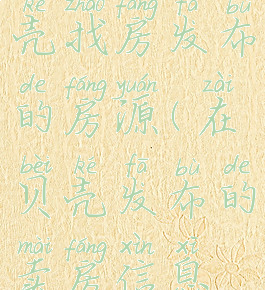 ké zhǎo fáng fā bù
壳找房发布
de fáng yuán zài
的房源(在
bèi ké fā bù de
贝壳发布的
mài fáng xìn xī
卖房信息